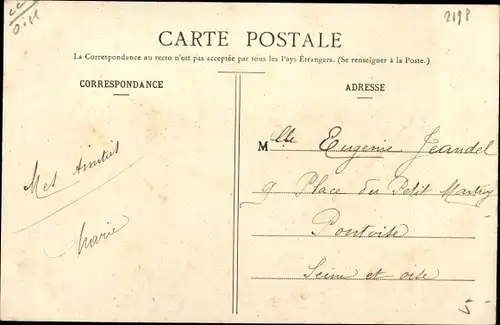 Oise
2198
CARTE POSTALE
La Correspondance au recto n'est pas acceptée par tous les Pays Étrangers. (Se renseigner à la Poste.)
CORRESPONDANCE
ADRESSE
Mes Amitiés
Marie
Mlle Eugenie Jeandel
9 Place du Petit Martroy
Pontoise
Seine et oise